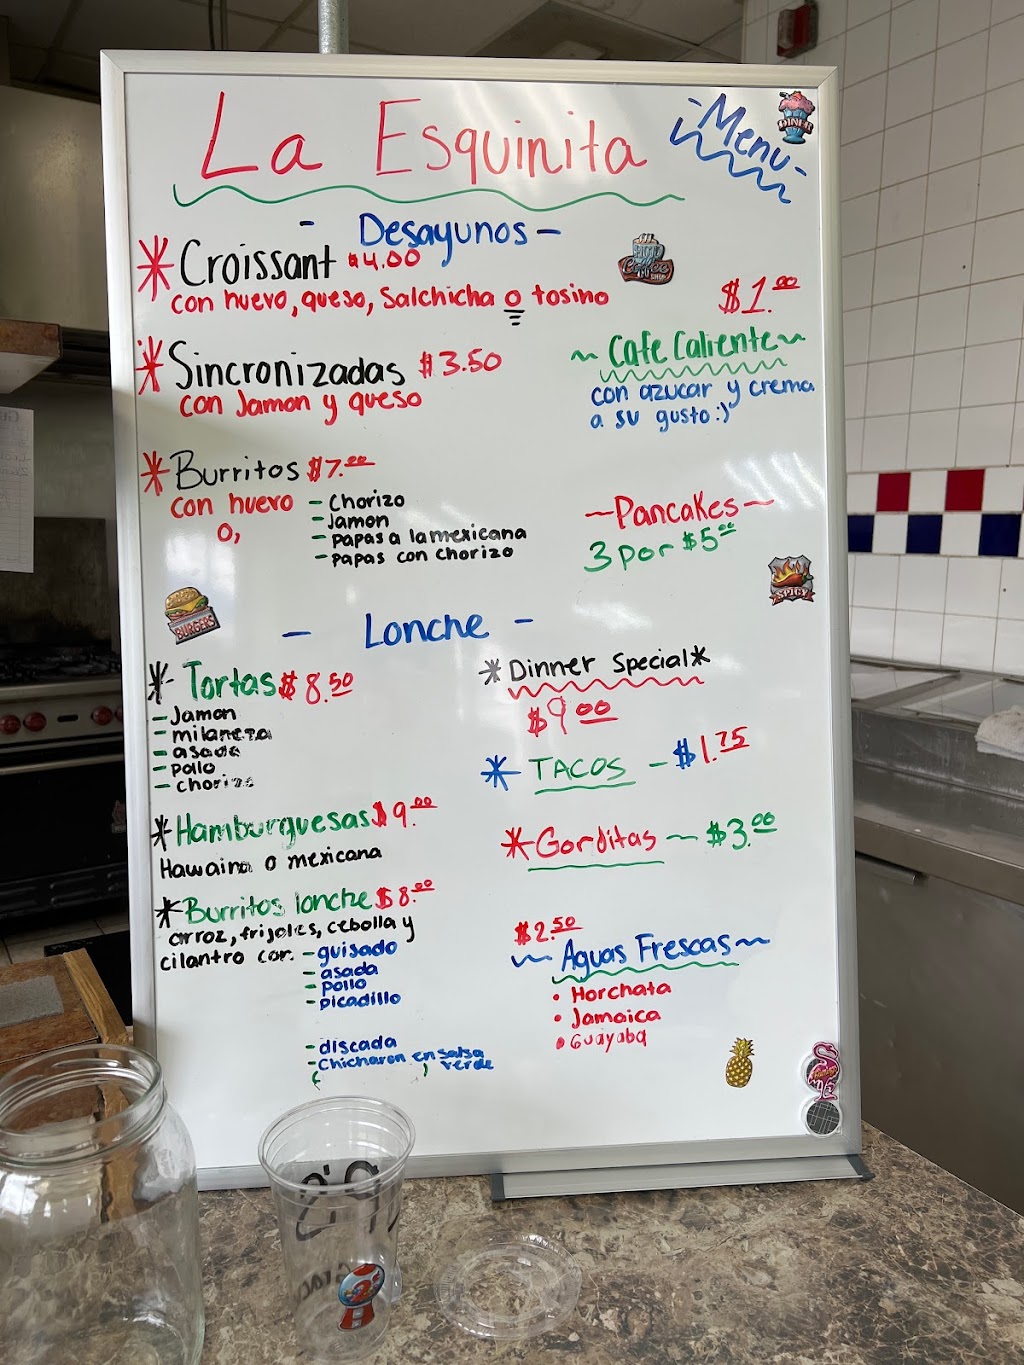 La Esquinita
-Menu-
DINER
- Desayunos -
* Croissant $4.00
con huevo, queso, Salchicha o tosino
Coffee
$1.00
~ Cafe Caliente ~
con azucar y crema
a su gusto :)
* Sincronizadas $3.50
con Jamon y queso
* Burritos $7.00
con huevo
o,
- Chorizo
- Jamon
- papas a la mexicana
- papas con chorizo
~ Pancakes ~
3 por $5.00
SPICY
BURGERS
- Lonche -
* Tortas $8.50
- Jamon
- milaneza
- asada
- pollo
- chorizo
* Hamburguesas $9.00
Hawaina o mexicana
* Burritos lonche $8.00
arroz, frijoles, cebolla y
cilantro con:
- guisado
- asada
- pollo
- picadillo
- discada
- Chicharon en salsa
verde
* Dinner Special *
$9.00
* TACOS - $1.75
* Gorditas ~ $3.00
$2.50
~ Aguas Frescas ~
• Horchata
• Jamaica
• Guayaba